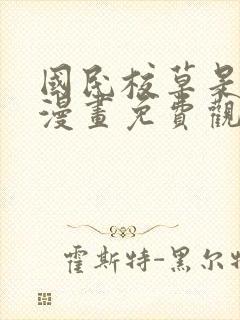 國民校草是
漫畫免費觀
霍斯特-黑尔特